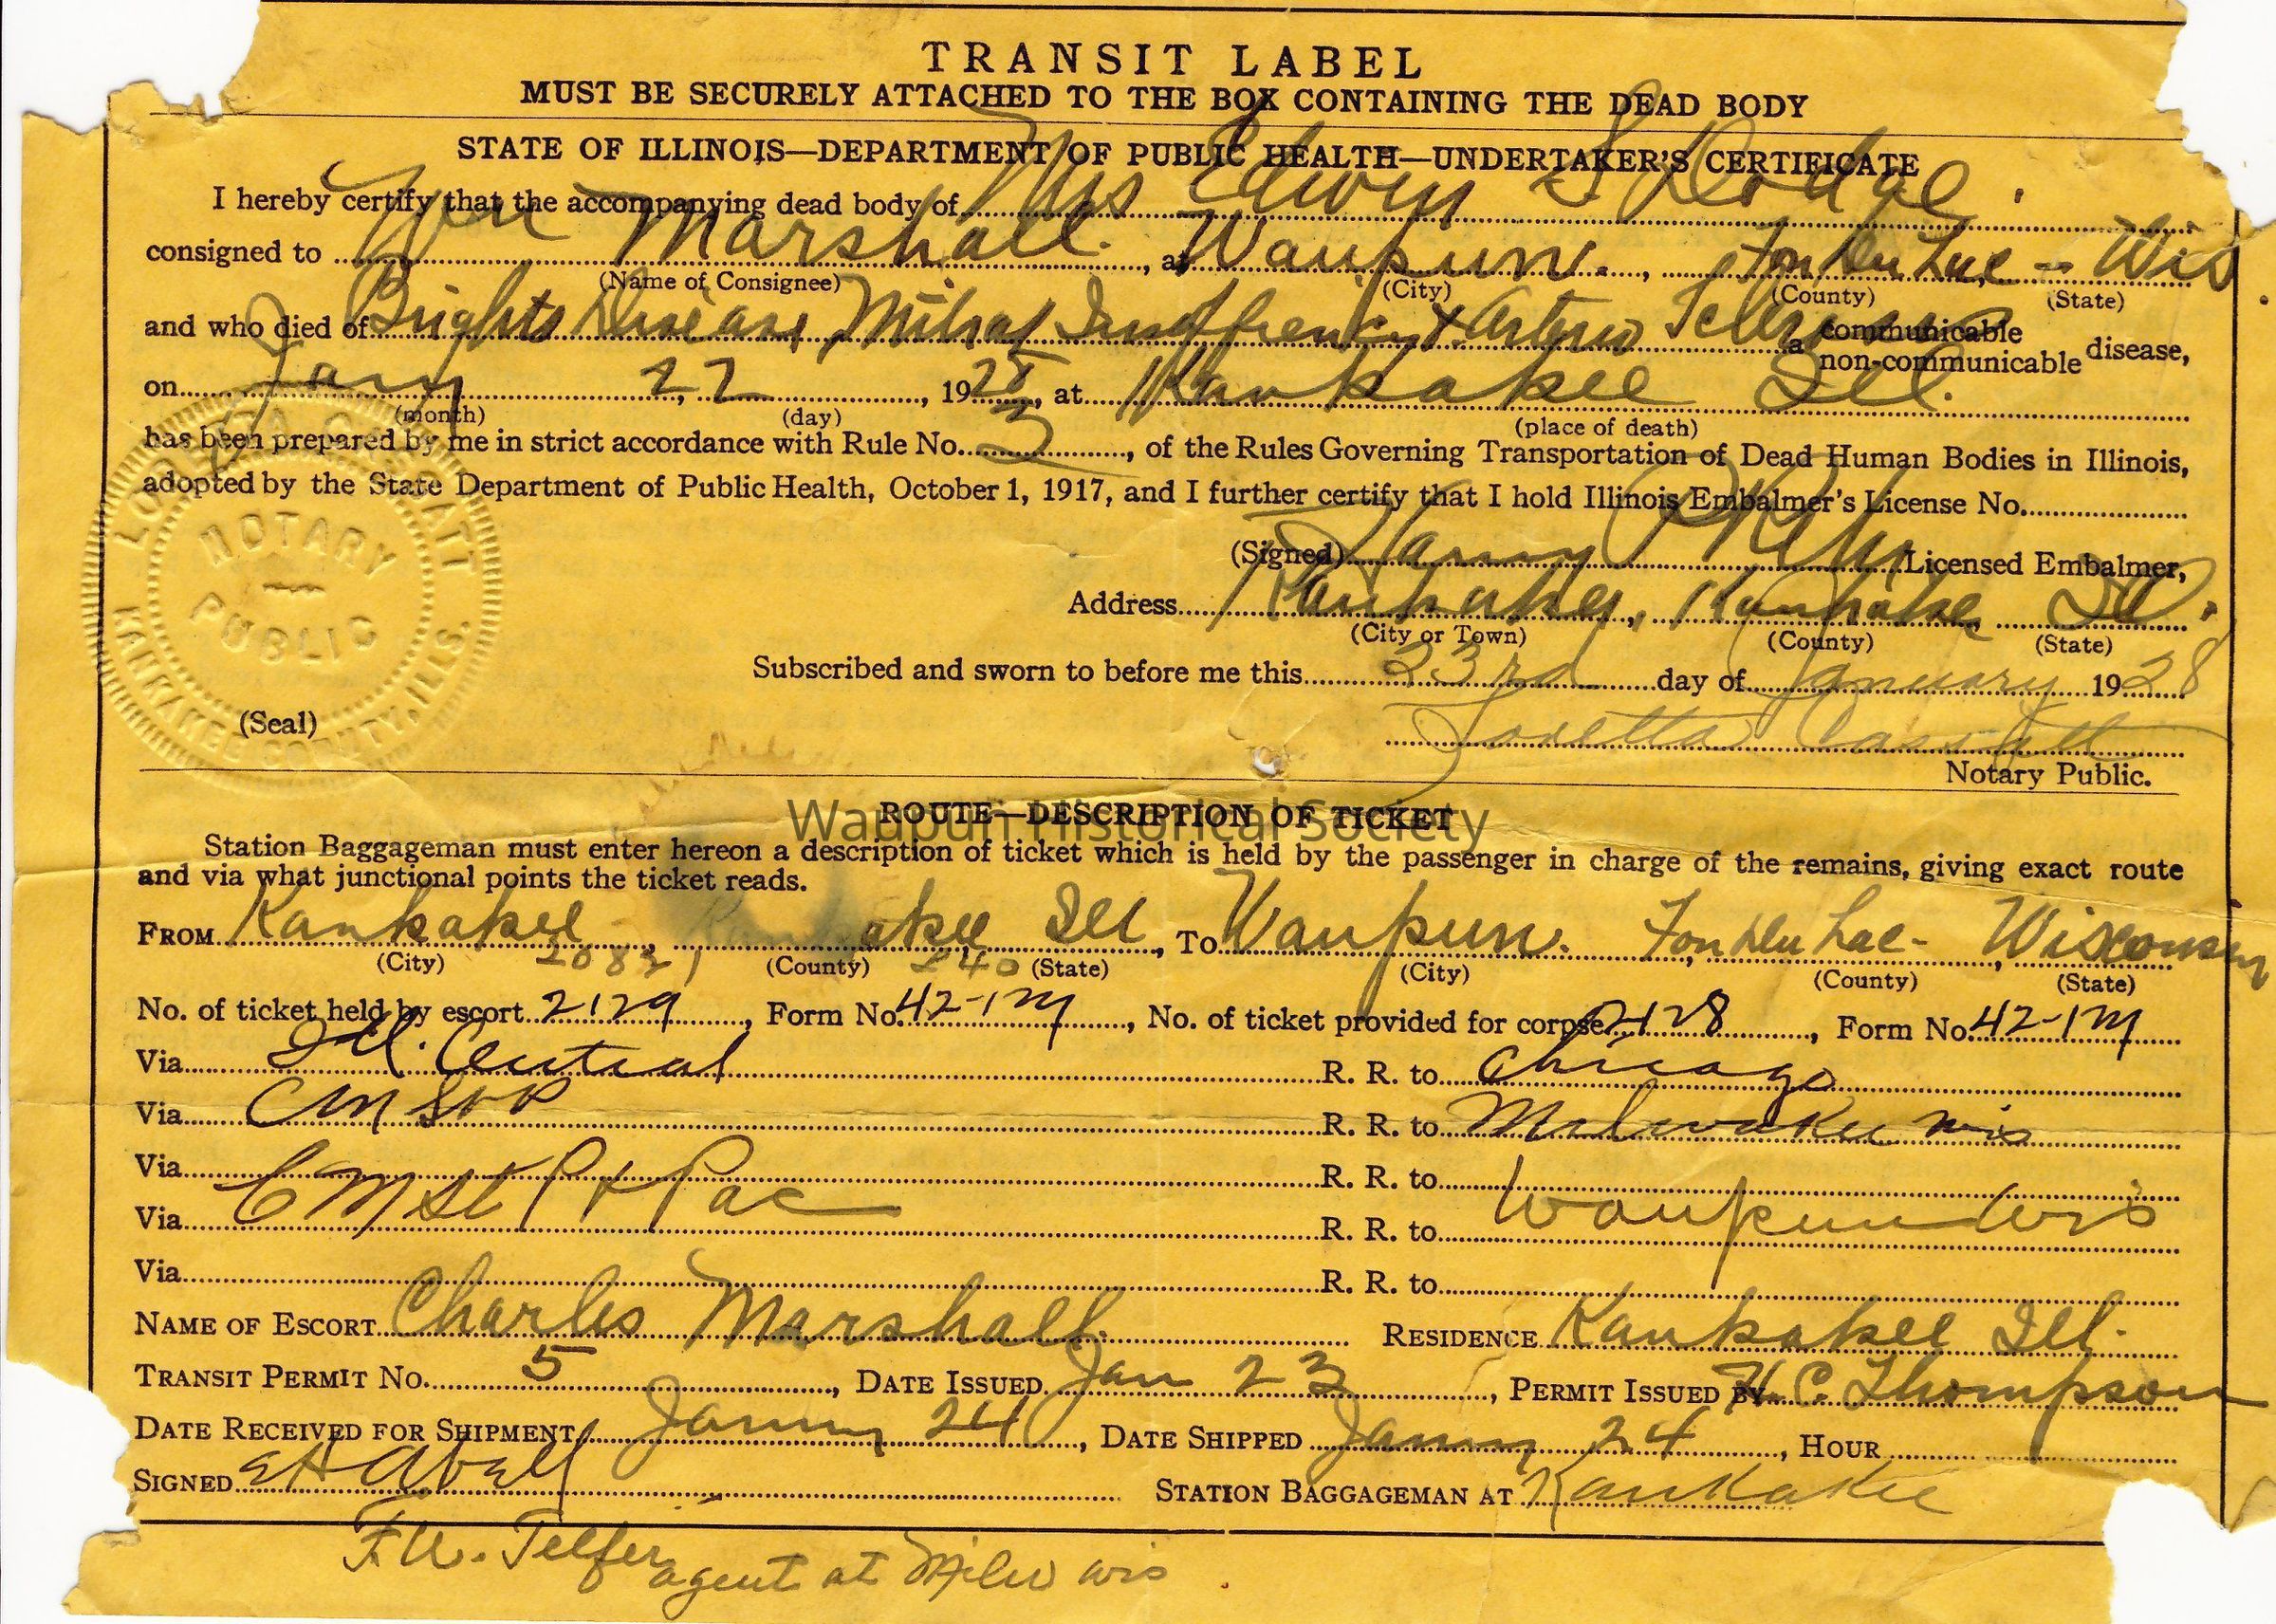 TRANSIT LABEL
MUST BE SECURELY ATTACHED TO THE BOX CONTAINING THE DEAD BODY
STATE OF ILLINOIS—DEPARTMENT OF PUBLIC HEALTH—UNDERTAKER'S CERTIFICATE
I hereby certify that the accompanying dead body of Mrs Edwin S Dodge.
consigned to Wm Marshall., at Waupun., Fon Du Lac - Wis.
(Name of Consignee) (City) (County) (State)
and who died of Brights Disease, Mitral Insuffiency & Arterio a communicable non-communicable disease,
on Jany 22, 1928, at Kankakee Ill.
(month) (day) (place of death)
has been prepared by me in strict accordance with Rule No. 3, of the Rules Governing Transportation of Dead Human Bodies in Illinois,
adopted by the State Department of Public Health, October 1, 1917, and I further certify that I hold Illinois Embalmer's License No.
(Signed) Harvey Licensed Embalmer,
Address Kankakee, Kankakee Ill.
(City or Town) (County) (State)
Subscribed and sworn to before me this 23rd day of January 1928
Loretta
Notary Public.
NOTARY PUBLIC
KANKAKEE COUNTY, ILLS.
(Seal)
Waupun Historical Society
ROUTE—DESCRIPTION OF TICKET
Station Baggageman must enter hereon a description of ticket which is held by the passenger in charge of the remains, giving exact route
and via what junctional points the ticket reads.
FROM Kankakee, Kankakee Ill, To Waupun. Fon Du Lac-, Wisconsin
(City) (County) (State) (City) (County) (State)
No. of ticket held by escort 2129, Form No. 42-1M, No. of ticket provided for corpse 2128, Form No. 42-1M
Via Ill. Central R. R. to Chicago
Via CM St P R. R. to Milwakee Wis
Via R. R. to
Via CM St P & Pac R. R. to Waupun Wis
Via R. R. to
NAME OF ESCORT Charles Marshall. RESIDENCE Kankakee Ill.
TRANSIT PERMIT No. 5, DATE ISSUED Jan 23, PERMIT ISSUED BY H. C. Thompson
DATE RECEIVED FOR SHIPMENT Janury 24, DATE SHIPPED Janury 24, HOUR
SIGNED EH Abell STATION BAGGAGEMAN AT Kankakee
F.W. Telfer agent at Milw wis.